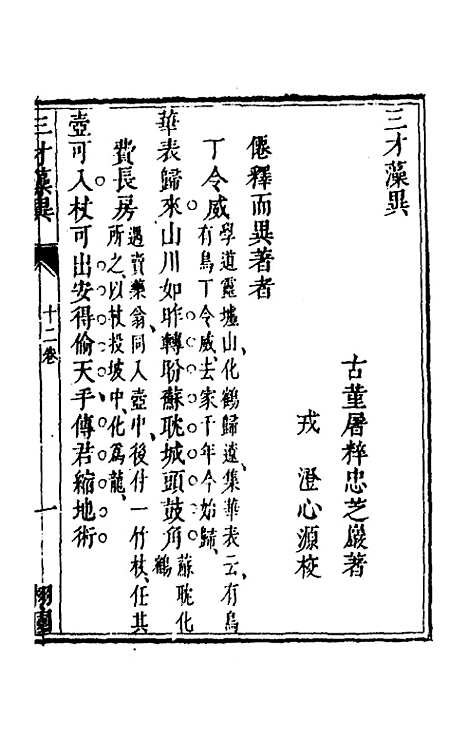 三才藻異
古董屠粹忠芝巖著
戎 澄心源校
僊釋而異著者
丁令威 學道靈墟山化鶴歸遼集華表云有鳥
有鳥丁令威去家千年今始歸
華表歸來山川如昨轉盼蘇耽城頭鼓角 蘇耽化
鶴
費長房 遇賣藥翁同入壺中後付一竹杖任其
所之以杖投坡中化爲龍
壺可入杖可出安得偷天手傳君縮地術
三才藻異
十二卷
一